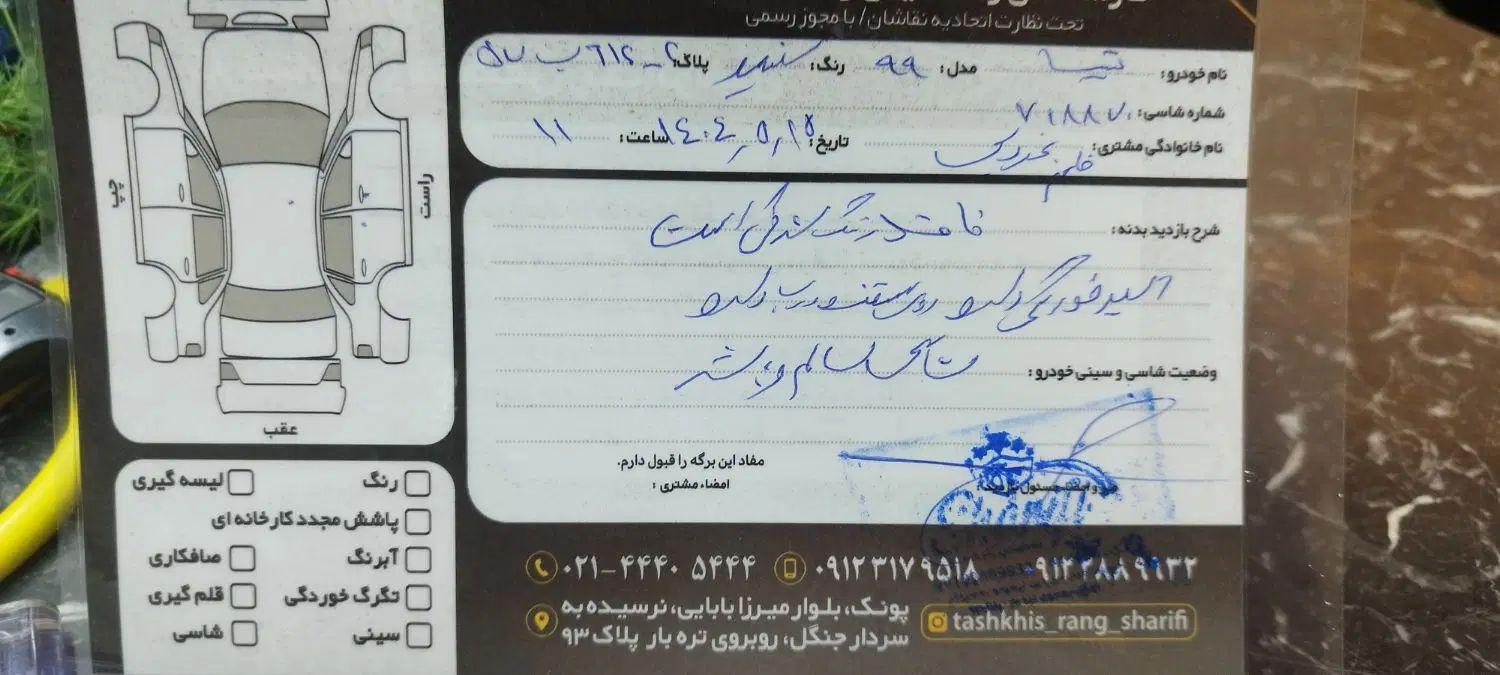 تحت نظارت اتحادیه نقاشان / با مجوز رسمی
نام خودرو: تیبا مدل: ۹۹ رنگ: سفید پلاک:
شماره شاسی:
نام خانوادگی مشتری: خانم تاریخ: ۱۴۰۴,۵,۱۵ ساعت: ۱۱
شرح بازدید بدنه: فاقد رنگ شدگی است
اسید خوردگی دارد روی سقف و درب دارد
وضعیت شاسی و سینی خودرو: سالم میباشد
مفاد این برگه را قبول دارم.
امضاء مشتری:
راست
چپ
عقب
رنگ لیسه گیری
پاشش مجدد کارخانه ای
آبرنگ صافکاری
تگرگ خوردگی قلم گیری
سینی شاسی
۰۲۱-۴۴۴۰ ۵۴۴۴ ۰۹۱۲ ۳۱۷ ۹۵۱۸ ۰۹۱۲ ۲۸۸ ۹۶۳۲
پونک، بلوار میرزا بابایی، نرسیده به
سردار جنگل، روبروی تره بار پلاک ۹۳
tashkhis_rang_sharifi